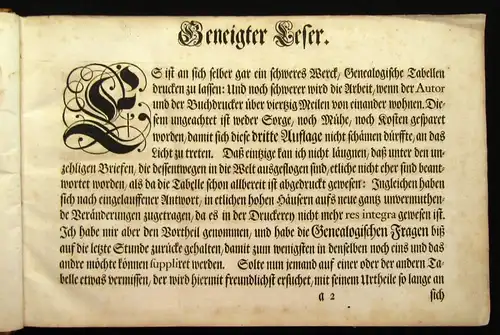 Geneigter Leser.
ES ist an sich selber gar ein schweres Werck/ Genealogische Tabellen
drucken zu lassen: Und noch schwerer wird die Arbeit, wenn der Autor
und der Buchdrucker über viertzig Meilen von einander wohnen. Die-
sem ungeachtet ist weder Sorge, noch Mühe, noch Kosten gesparet
worden, damit sich diese dritte Auflage nicht schämen dürffte, an das
Licht zu treten. Daß eintzige kan ich nicht läugnen, daß unter den un-
zehligen Briefen, die dessentwegen in die Welt ausgeflogen sind, etliche nicht eher sind beant-
wortet worden, als da die Tabelle schon allbereit ist abgedruckt gewesen: Ingleichen haben
sich nach eingelauffener Antwort, in etlichen hohen Häusern aufs neue gantz unvermuthen-
de Veränderungen zugetragen, da es in der Druckerey nicht mehr res integra gewesen ist.
Ich habe mir aber den Vortheil genommen, und habe die Genealogischen Fragen biß
auf die letzte Stunde zurücke gehalten, damit zum wenigsten in denselben noch eins und das
andre möchte können suppliret werden. Solte nun jemand auf einer oder der andern Ta-
belle etwas vermissen, der wird hiermit freundlichst ersuchet, mit seinem Urtheile so lange an
a 2 sich